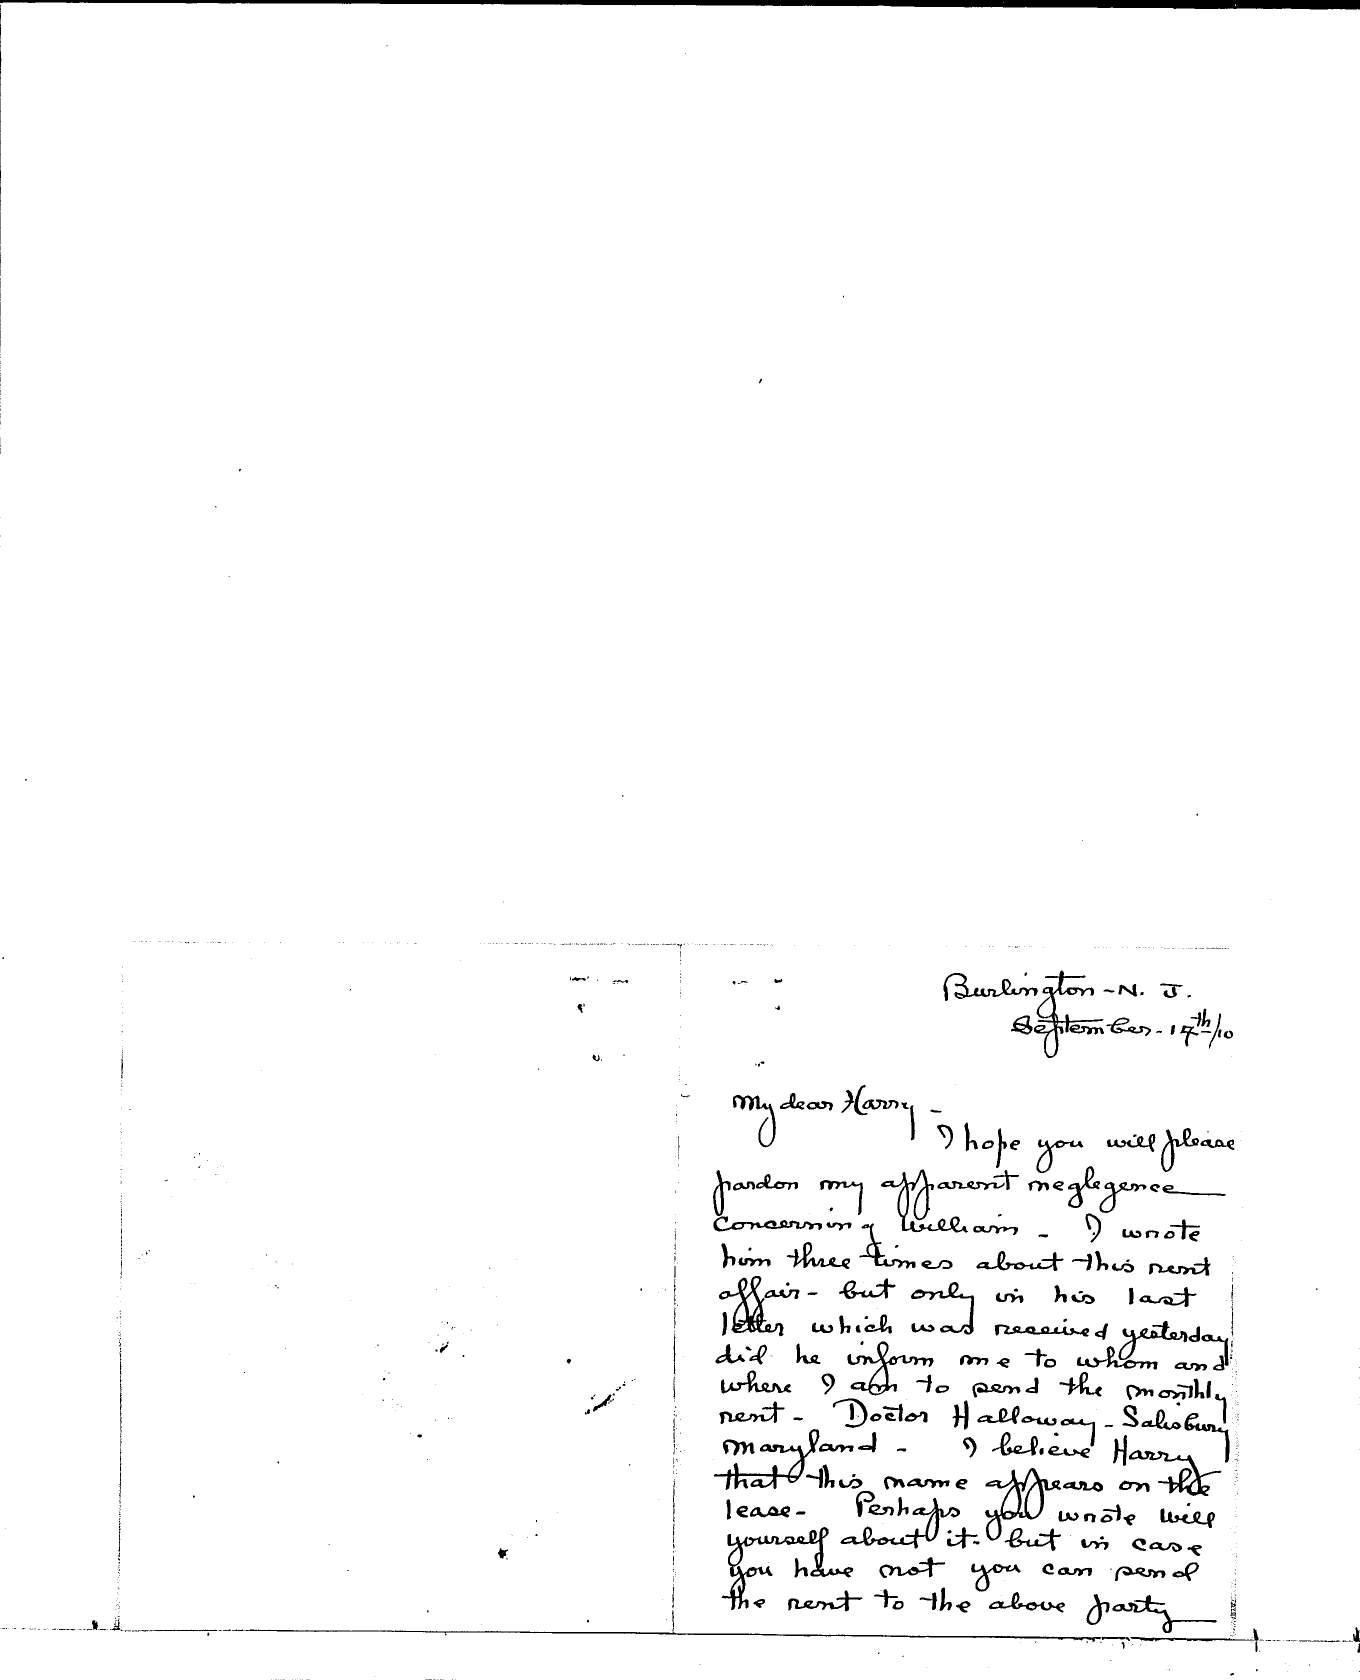 Burlington - N. J.
September - 17th/10
My dear Harry -
I hope you will please
pardon my apparent neglegence
concerning William - I wrote
him three times about this rent
affair - but only in his last
letter which was received yesterday
did he inform me to whom and
where I am to send the monthly
rent - Doctor Halloway - Salisbury
Maryland - I believe Harry
that this name appears on the
lease - Perhaps you wrote Will
yourself about it - but in case
you have not you can send
the rent to the above party